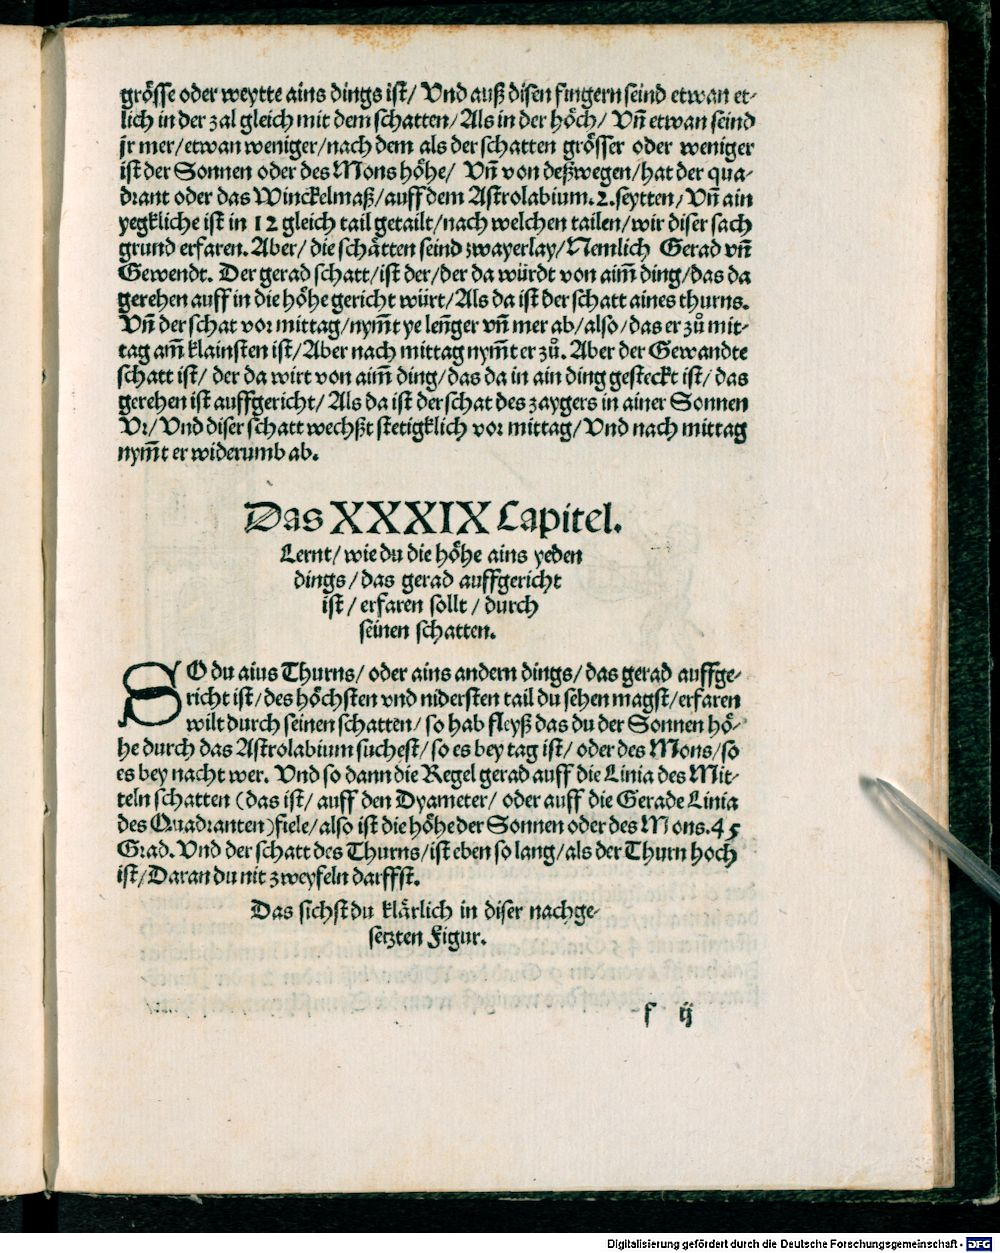 grösse oder weytte ains dings ist/ Vnd auß disen fingern seind etwan et-
lich in der zal gleich mit dem schatten/ Als in der höch/ Vñ etwan seind
jr mer/ etwan weniger/ nach dem als der schatten grösser oder weniger
ist der Sonnen oder des Mons höhe/ Vñ von deßwegen/ hat der qua-
drant oder das Winckelmaß/ auff dem Astrolabium. 2. seytten/ Vñ ain
yegkliche ist in 12 gleich tail getailt/ nach welchen tailen/ wir diser sach
grund erfaren. Aber/ die schätten seind zwayerlay/ Nemlich Gerad vñ
Gewendt. Der gerad schatt/ ist der/ der da würdt von aim̃ ding/ das da
gerehen auff in die höhe gericht würt/ Als da ist der schatt aines thurns.
Vñ der schat vor mittag/ nym̃t ye len̄ger vñ mer ab/ also/ das er zů mit-
tag am̃ klainsten ist/ Aber nach mittag nym̃t er zů. Aber der Gewandte
schatt ist/ der da wirt von aim̃ ding/ das da in ain ding gesteckt ist/ das
gerehen ist auffgericht/ Als da ist der schat des zaygers in ainer Sonnen
Vr/ Vnd diser schatt wechßt stetigklich vor mittag/ Vnd nach mittag
nym̃t er widerumb ab.
Das XXXIX Capitel.
Lernt/ wie du die höhe ains yeden
dings/ das gerad auffgericht
ist/ erfaren sollt/ durch
seinen schatten.
SO du aius Thurns/ oder ains andern dings/ das gerad auffge-
richt ist/ des höchsten vnd nidersten tail du sehen magst/ erfaren
wilt durch seinen schatten/ so hab fleyß das du der Sonnen hö-
he durch das Astrolabium suchest/ so es bey tag ist/ oder des Mons/ so
es bey nacht wer. Vnd so dann die Regel gerad auff die Linia des Mit-
teln schatten (das ist/ auff den Dyameter/ oder auff die Gerade Linia
des Quadranten) fiele/ also ist die höhe der Sonnen oder des Mons. 45
Grad. Vnd der schatt des Thurns/ ist eben so lang/ als der Thurn hoch
ist/ Daran du nit zweyfeln darffst.
Das sichst du klärlich in diser nachge-
setzten Figur.
f ij
Digitalisierung gefördert durch die Deutsche Forschungsgemeinschaft - DFG